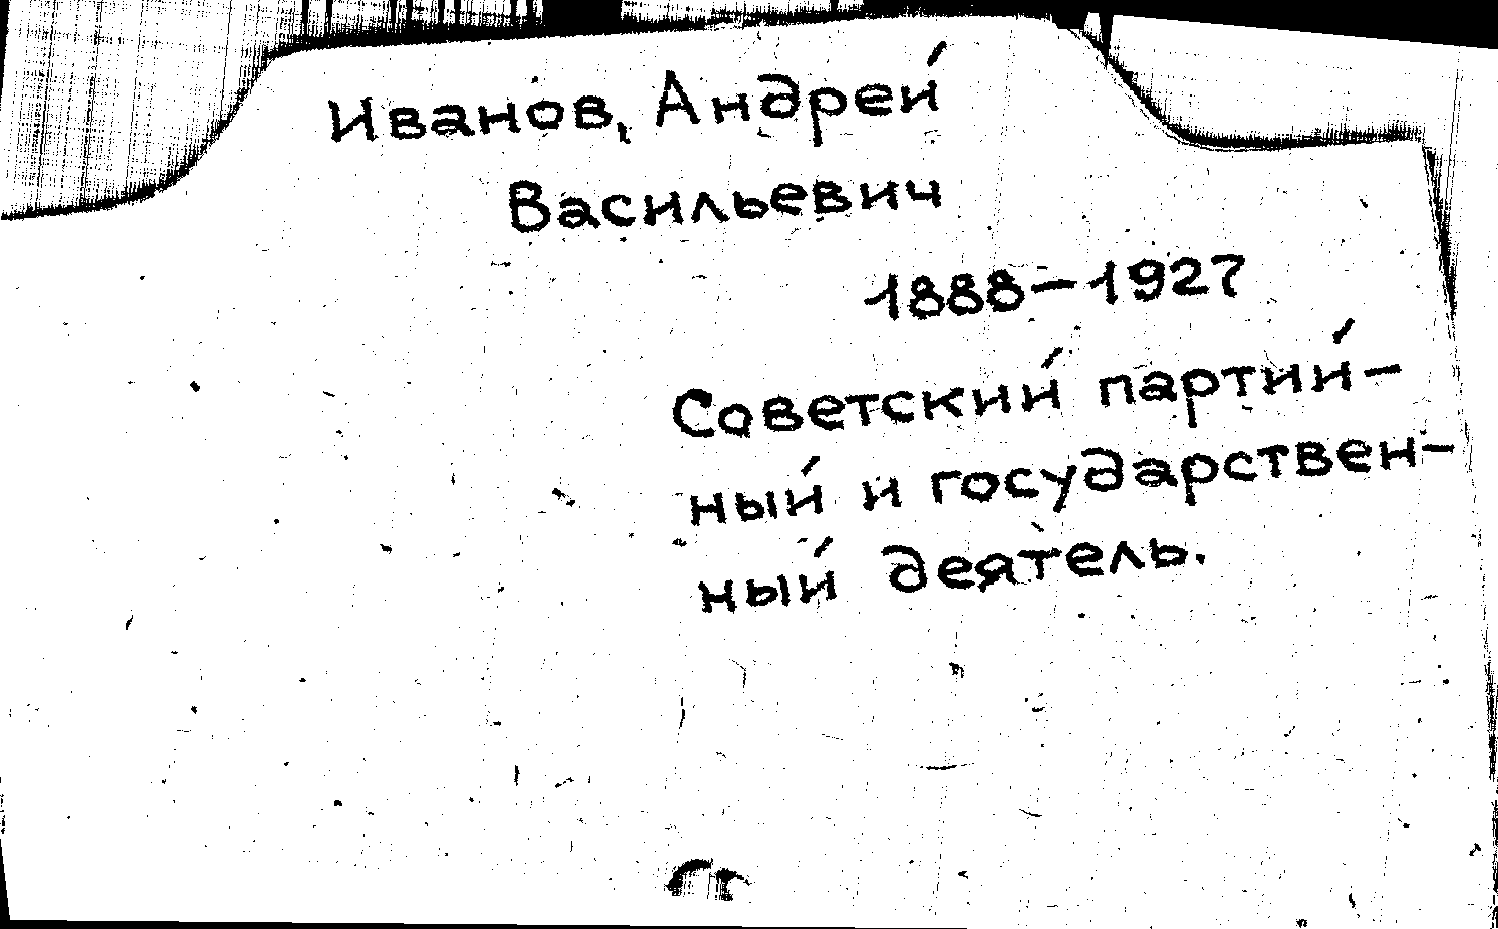 Иванов, Андрей
Васильевич
1888-1927
Советский партий-
ный и государствен-
ный деятель.